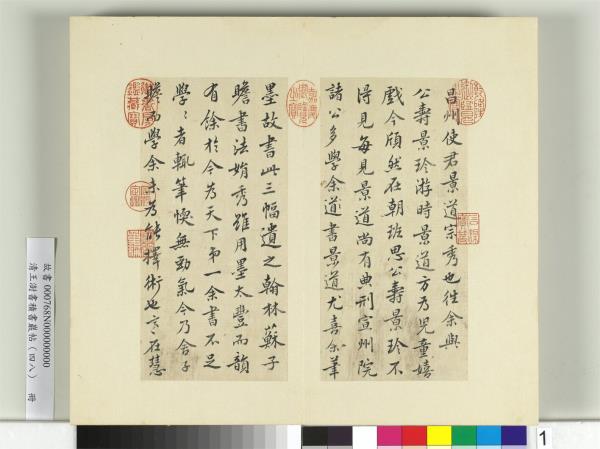 昌州使君景道宗秀也往余與
公壽景珍游時景道方為兒童嬉
戲今頎然在朝班思公壽景珍不
得見每見景道尚有典刑宣州院
諸公多學余道書景道尤喜余筆
墨故書此三幅遺之翰林蘇子
瞻書法娟秀雖用墨太豐而韻
有餘於今為天下第一余書不足
學〻者輒筆愞無勁氣今乃舍子
瞻而學余未為能擇術也言在慧
故書 000768N000000000
清王澍書積書巖帖(四八) 冊
1